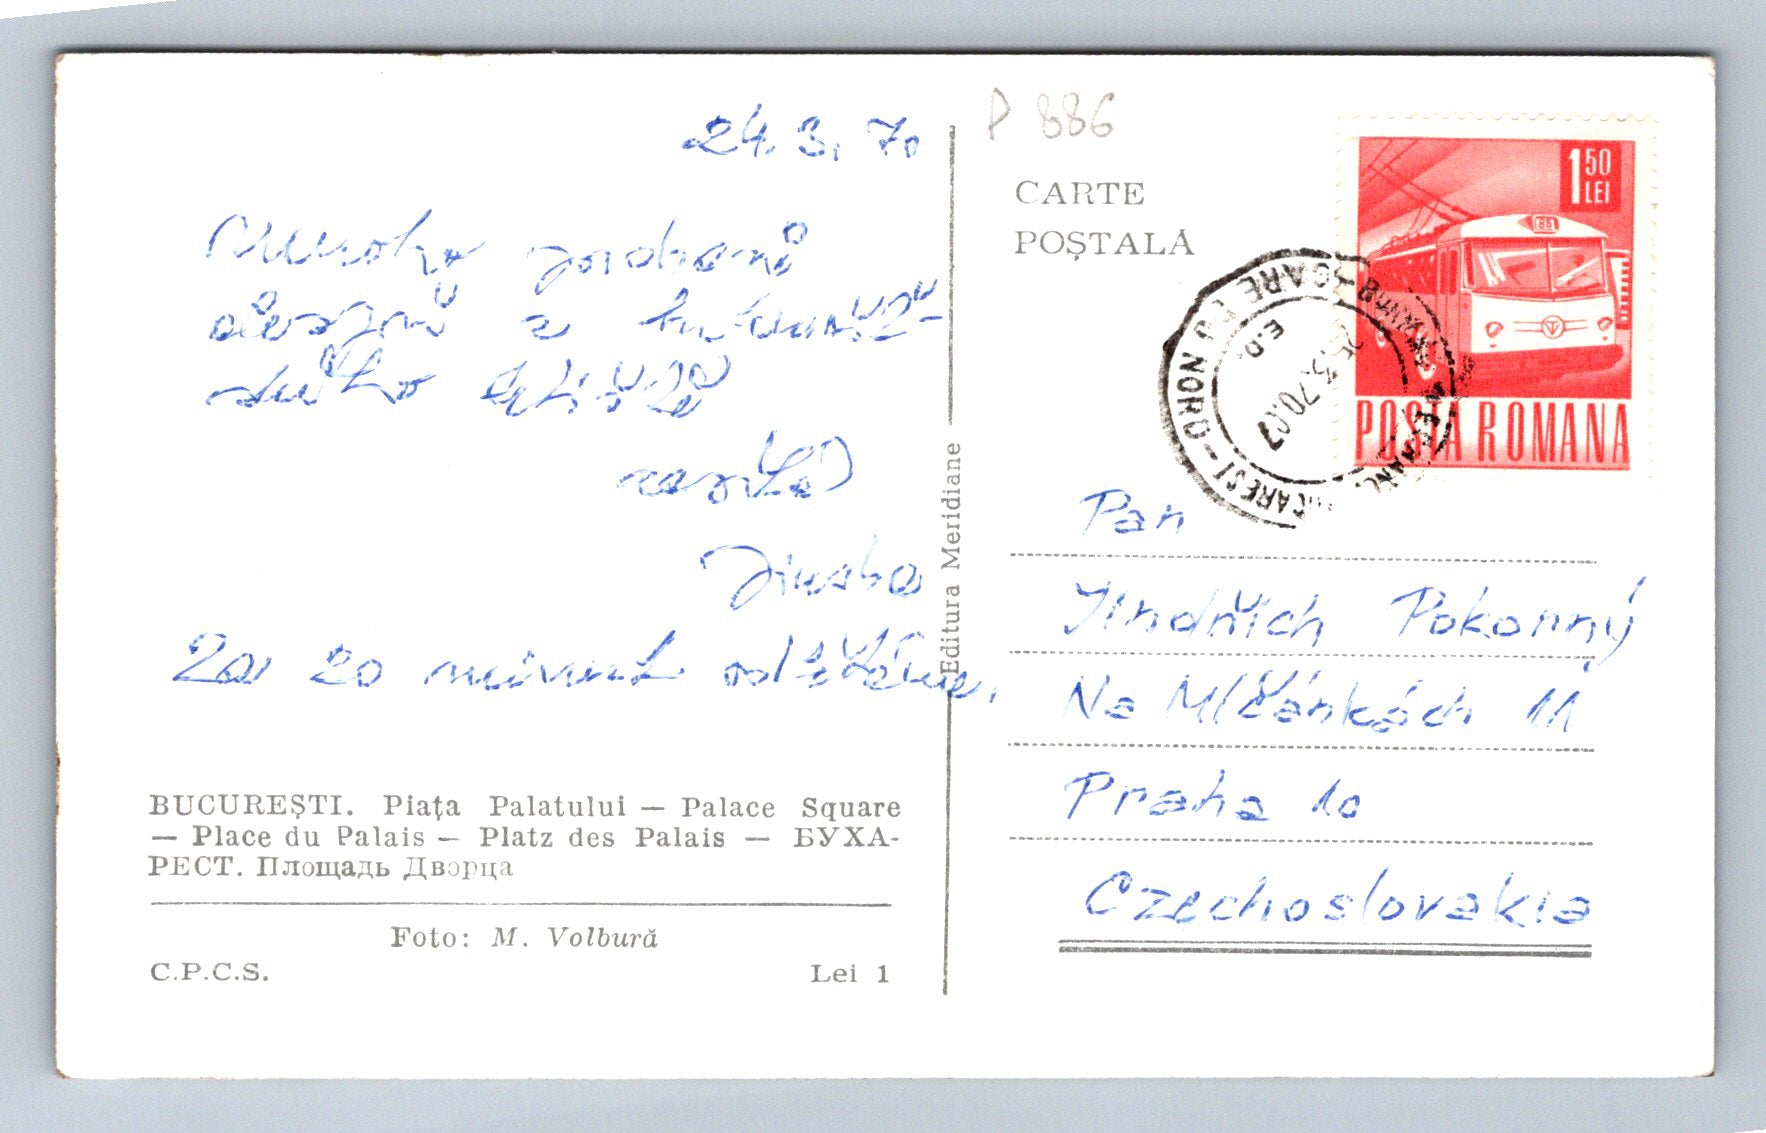 24. 3. 70
Mnoho pozdravů
z
zasílá
Jirka
Za 20 minut odlétáme.
BUCUREȘTI. Piața Palatului — Palace Square
— Place du Palais — Platz des Palais — БУХА-
РЕСТ. Площадь Дворца
Foto: M. Volbură
C.P.C.S. Lei 1
Editura Meridiane
P 886
CARTE
POȘTALĂ
1 50
LEI
85
POSTA ROMANA
25.3.70.07
E.D.
Pan
Jindřich Pokorný
Na Mlčánkách 11
Praha 10
Czechoslovakia